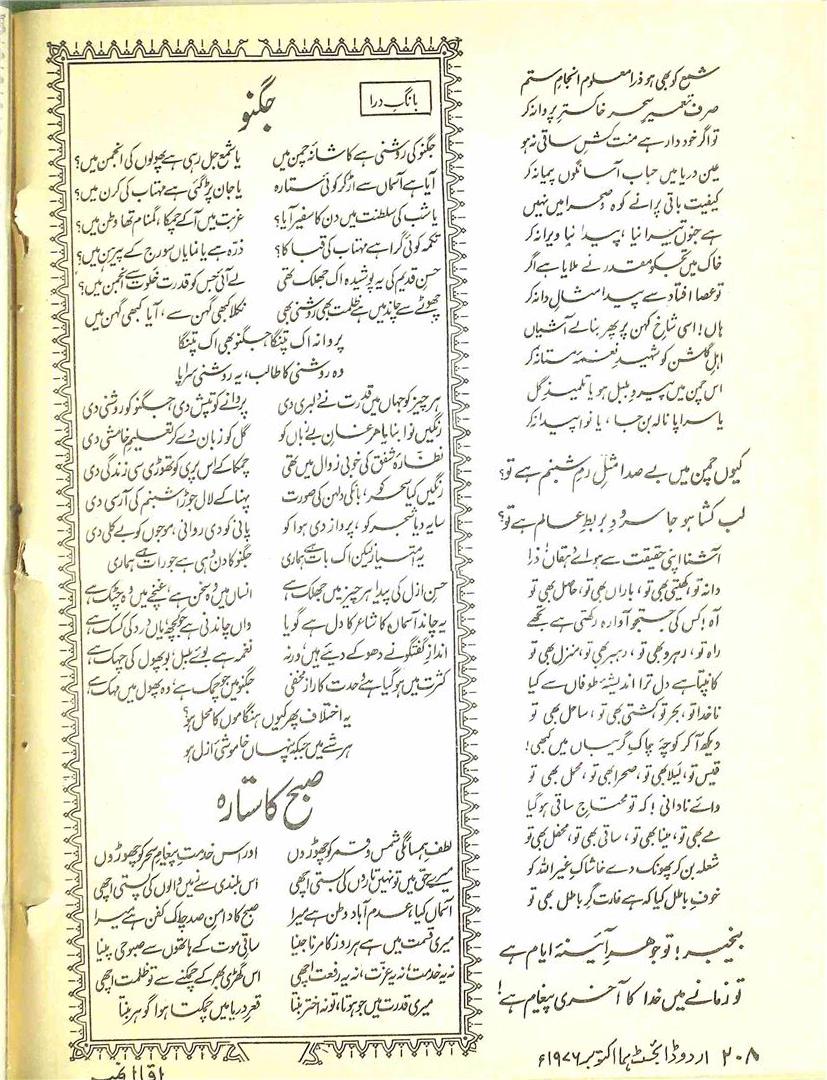 شمع کو بھی ہو ذرا معلوم انجامِ ستم
صرفِ تعمیرِ سحر خاکسترِ پروانہ کر
تو اگر خود دار ہے منت کشِ ساقی نہ ہو
عین دریا میں حباب آسا نگوں پیمانہ کر
کیفیت باقی پرانے کوہ و صحرا میں نہیں
ہے جنوں تیرا نیا، پیدا نیا ویرانہ کر
خاک میں تجھ کو مقدر نے ملایا ہے اگر
تو عصا افتاد سے پیدا مثالِ دانہ کر
ہاں! اسی شاخِ کہن پر پھر بنا لے آشیاں
اہلِ گلشن کو شہیدِ نغمۂ مستانہ کر
اس چمن میں پیروِ بلبل ہو یا تلمیذِ گل
یا سراپا نالہ بن جا، یا نوا پیدا نہ کر
کیوں چمن میں بے صدا مثلِ رمِ شبنم ہے تو؟
لب کشا ہو جا سرودِ بربطِ عالم ہے تو؟
آشنا اپنی حقیقت سے ہو اے دہقاں ذرا
دانہ تو، کھیتی بھی تو، باراں بھی تو، حاصل بھی تو
آہ! کس کی جستجو آوارہ رکھتی ہے تجھے
راہ تو، رہرو بھی تو، رہبر بھی تو، منزل بھی تو
کانپتا ہے دل ترا اندیشۂ طوفاں سے کیا
ناخدا تو، بحر تو، کشتی بھی تو، ساحل بھی تو
دیکھ آ کر کوچۂ چاکِ گریباں میں کبھی!
قیس تو، لیلا بھی تو، صحرا بھی تو، محمل بھی تو
وائے نادانی! کہ تو محتاجِ ساقی ہو گیا
مے بھی تو، مینا بھی تو، ساقی بھی تو، محفل بھی تو
شعلہ بن کر پھونک دے خاشاکِ غیر اللہ کو
خوفِ باطل کیا کہ ہے غارت گرِ باطل بھی تو
بے خبر! تو جوہرِ آئینۂ ایام ہے
تو زمانے میں خدا کا آخری پیغام ہے!
بانگِ درا
جگنو
جگنو کی روشنی ہے کاشانۂ چمن میں یا شمع جل رہی ہے پھولوں کی انجمن میں؟
آیا ہے آسماں سے اڑ کر کوئی ستارہ یا جان پڑ گئی ہے مہتاب کی کرن میں؟
یا شب کی سلطنت میں دن کا سفیر آیا؟ غربت میں آ کے چمکا، گمنام تھا وطن میں؟
تکمہ کوئی گرا ہے مہتاب کی قبا کا؟ ذرہ ہے یا نمایاں سورج کے پیرہن میں؟
حسنِ قدیم کی یہ پوشیدہ اک جھلک تھی لے آئی جس کو قدرت خلوت سے انجمن میں؟
چھوٹے سے چاند میں ہے ظلمت بھی روشنی بھی نکلا کبھی گہن سے، آیا کبھی گہن میں
پروانہ اک پتنگا جگنو بھی اک پتنگا
وہ روشنی کا طالب، یہ روشنی سراپا
ہر چیز کو جہاں میں قدرت نے دلبری دی پروانے کو تپش دی، جگنو کو روشنی دی
رنگیں نوا بنایا مرغانِ بے زباں کو گل کو زبان دے کر تعلیمِ خامشی دی
نظارۂ شفق کی خوبی زوال میں تھی چمکا کے اس پری کو تھوڑی سی زندگی دی
رنگیں کیا سحر کو، بانکی دلہن کی صورت پہنا کے لال جوڑا شبنم کی آرسی دی
سایہ دیا شجر کو، پرواز دی ہوا کو پانی کو دی روانی، موجوں کو بے کلی دی
یہ امتیاز لیکن اک بات ہے ہماری جگنو کا دن وہی ہے جو رات ہے ہماری
حسنِ ازل کی پیدا ہر چیز میں جھلک ہے انساں میں وہ سخن ہے، غنچے میں وہ چٹک ہے
یہ چاند آسماں کا شاعر کا دل ہے گویا واں چاندنی ہے جو کچھ، یاں درد کی کسک ہے
اندازِ گفتگو نے دھوکے دیے ہیں ورنہ نغمہ ہے بوئے بلبل، بو پھول کی چہک ہے
کثرت میں ہو گیا ہے وحدت کا راز مخفی جگنو میں جو چمک ہے، وہ پھول میں مہک ہے
یہ اختلاف پھر کیوں ہنگاموں کا محل ہو؟
ہر شے میں جبکہ پنہاں خاموشیِ ازل ہو
صبح کا ستارہ
لطفِ ہمسائگیِ شمس و قمر کو چھوڑوں اور اس خدمتِ پیغامِ سحر کو چھوڑوں
میرے حق میں تو نہیں تاروں کی بستی اچھی اس بلندی سے زمیں والوں کی پستی اچھی
آسماں کیا، عدم آباد وطن ہے میرا صبح کا دامنِ صد چاک کفن ہے میرا
میری قسمت میں ہے ہر روز کا مرنا جینا ساقیِ موت کے ہاتھوں سے صبوحی پینا
نہ یہ خدمت، نہ یہ عزت، نہ یہ رفعت اچھی اس گھڑی بھر کے چمکنے سے تو ظلمت اچھی
میری قدرت میں جو ہوتا، تو نہ اختر بنتا قعرِ دریا میں چمکتا ہوا گوہر بنتا
۲۰۸ اردو ڈائجسٹ ہما اکتوبر ۱۹۷۶ء